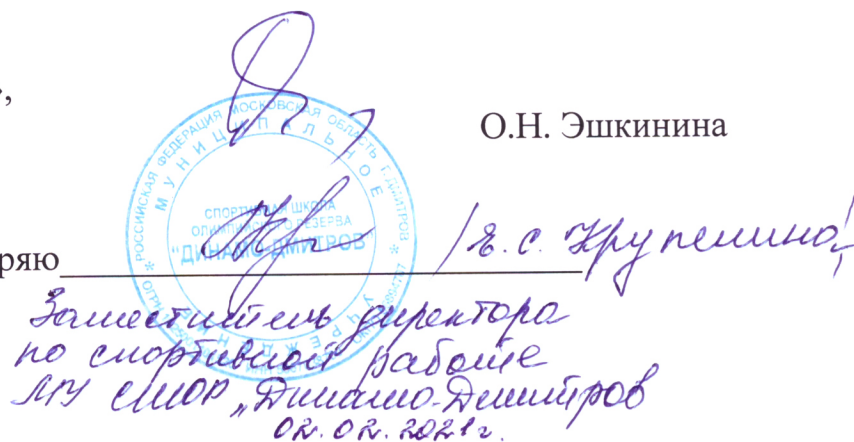 О.Н. Эшкинина
РОССИЙСКАЯ ФЕДЕРАЦИЯ МОСКОВСКАЯ ОБЛАСТЬ Г.ДМИТРОВ
МУНИЦИПАЛЬНОЕ
СПОРТИВНАЯ ШКОЛА
ОЛИМПИЙСКОГО РЕЗЕРВА
"ДИНАМО-ДМИТРОВ"
УЧРЕЖДЕНИЕ
ряю
Заместитель директора
по спортивной работе
МУ СШОР „Динамо-Дмитров
02.02.2021г.